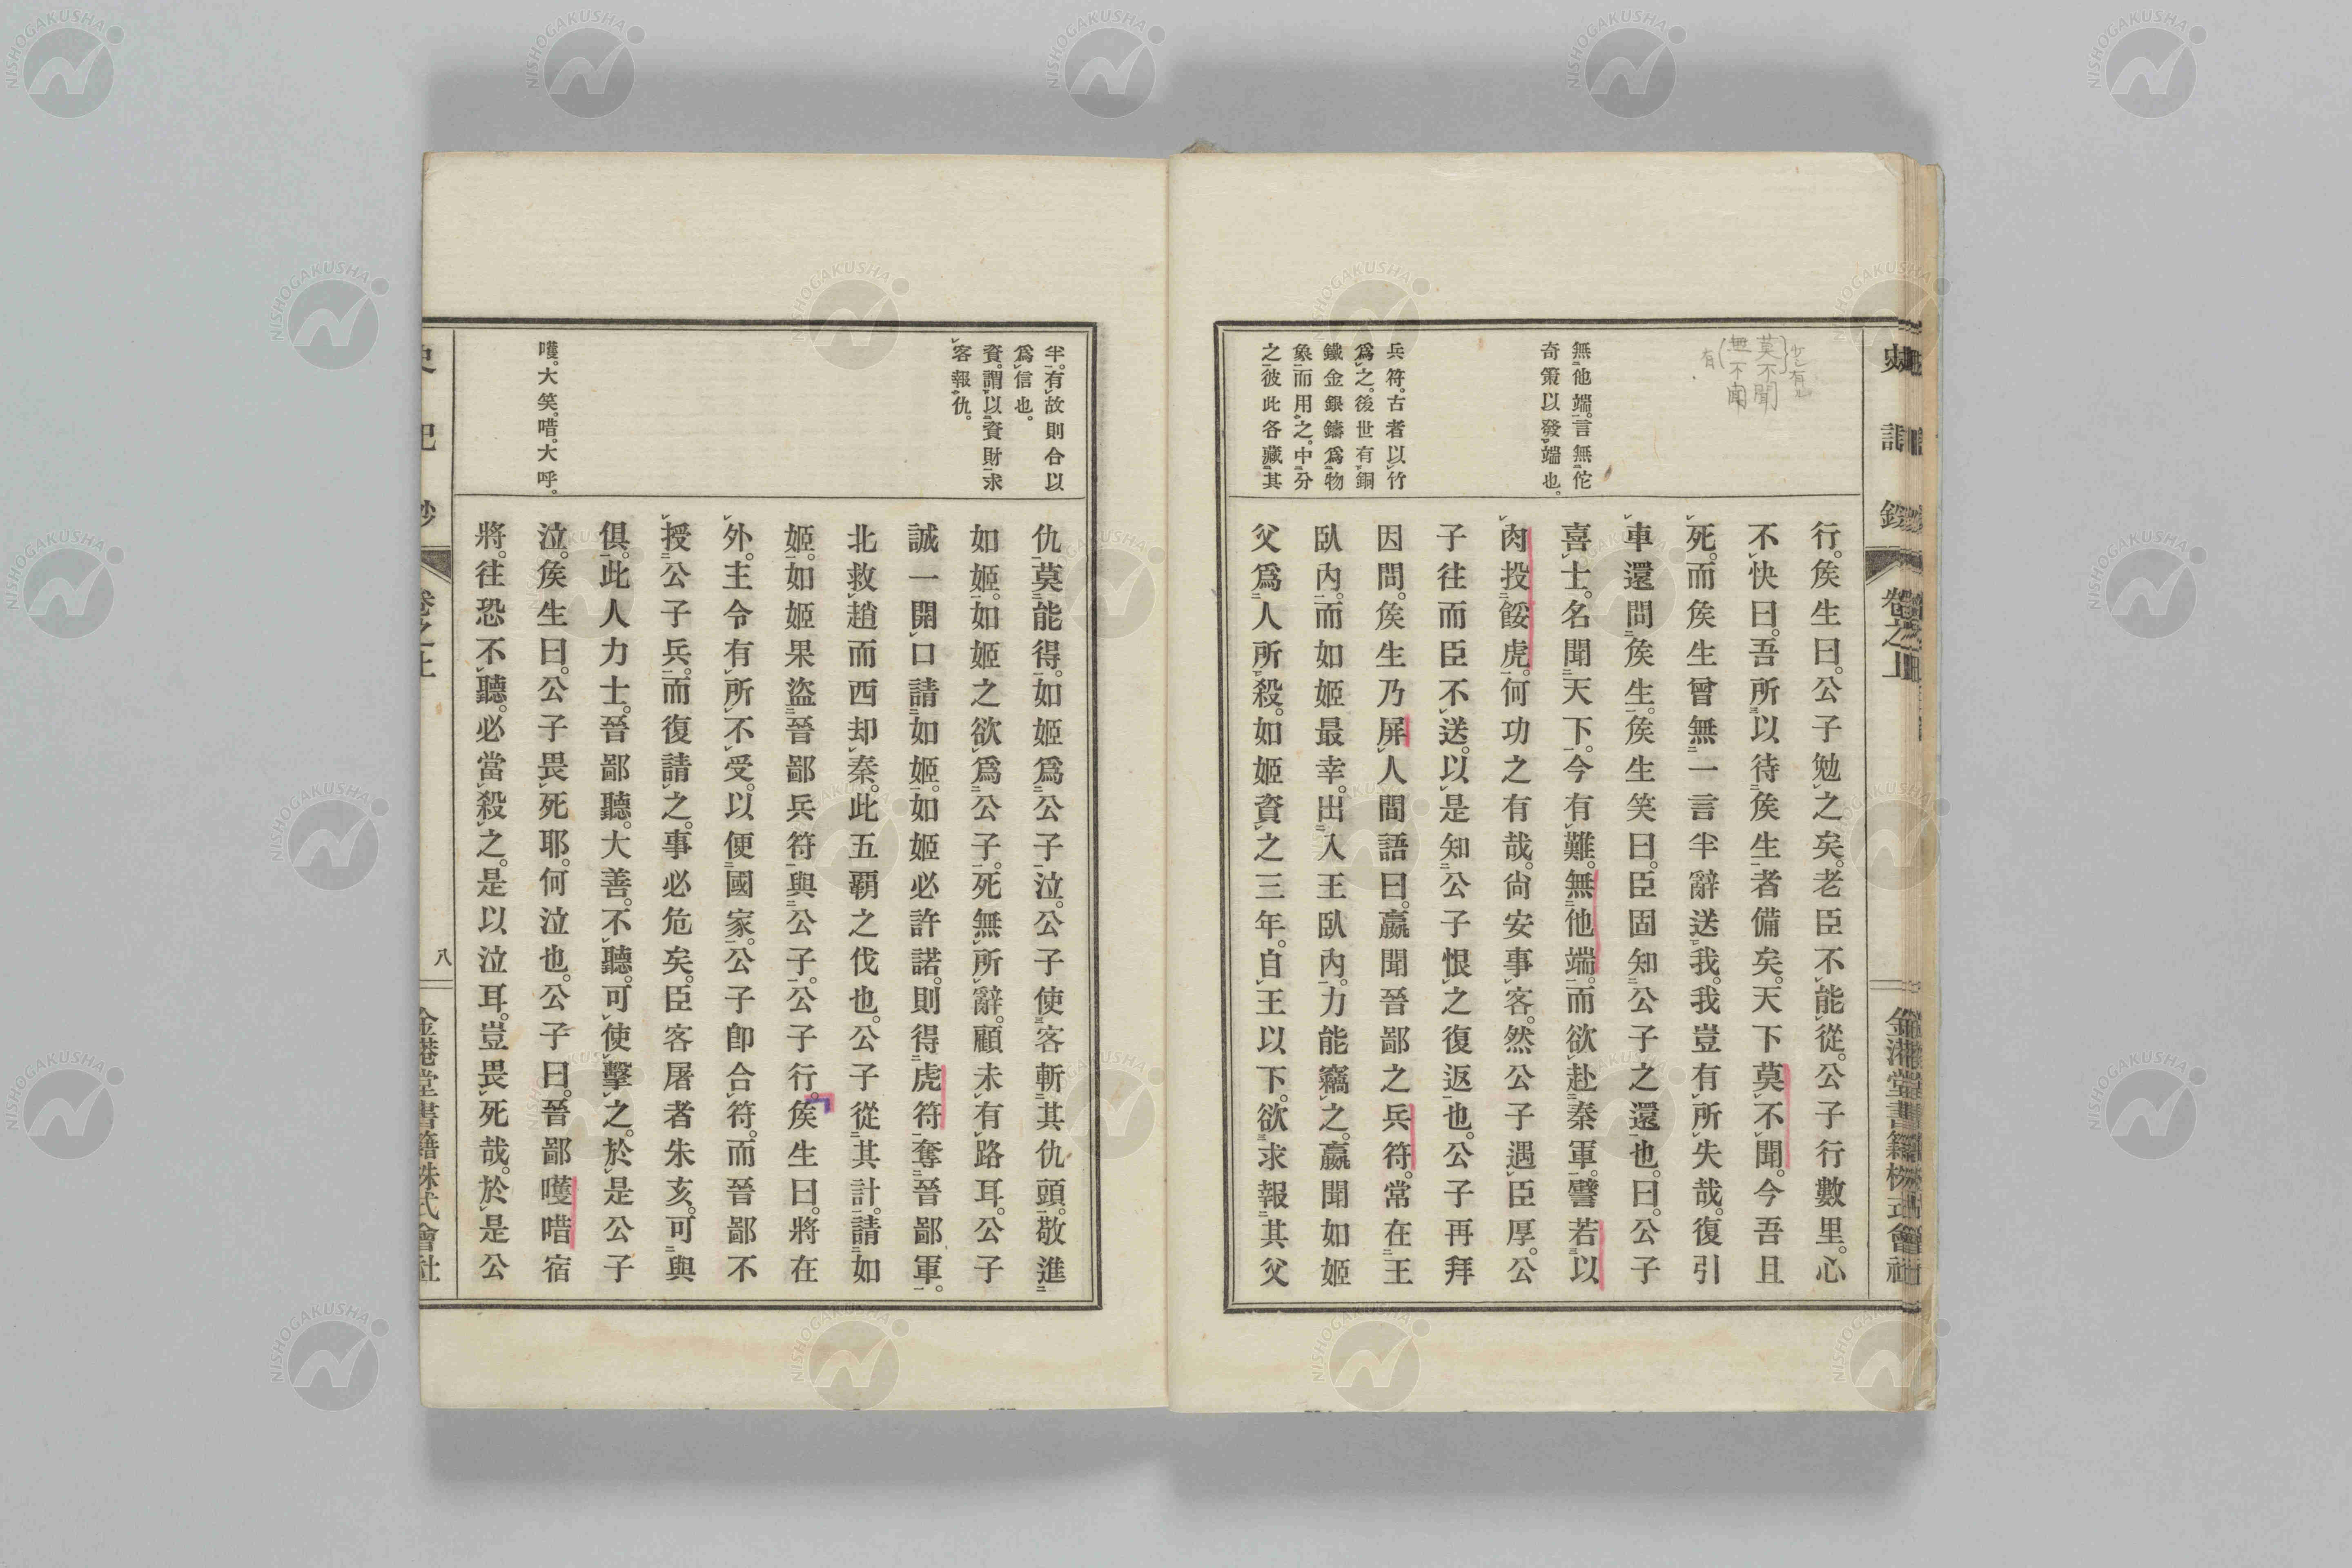 行。矦生曰。公子勉之矣。老臣不能從。公子行數里。心
不快曰。吾所以待矦生者備矣。天下莫不聞。今吾且
死。而矦生曾無一言半辭送我。我豈有所失哉。復引
車還問矦生。矦生笑曰。臣固知公子之還也。曰。公子
喜士。名聞天下。今有難。無他端。而欲赴秦軍。譬若以
肉投餒虎。何功之有哉。尙安事客。然公子遇臣厚。公
子往而臣不送。以是知公子恨之復返也。公子再拜
因問。矦生乃屏人間語曰。嬴聞晉鄙之兵符。常在王
臥內。而如姬最幸。出入王臥內。力能竊之。嬴聞如姬
父爲人所殺。如姬資之三年。自王以下。欲求報其父
無他端。言無佗
奇策以發端也。
兵符。古者以竹
爲之。後世有銅
鐵金銀鑄爲物
象而用之。中分
之彼此各藏其
莫不聞
無不聞
有
仇莫能得。如姬爲公子泣。公子使客斬其仇頭。敬進
如姬。如姬之欲爲公子死。無所辭。顧未有路耳。公子
誠一開口請如姬。如姬必許諾。則得虎符奪晉鄙軍。
北救趙而西却秦。此五覇之伐也。公子從其計。請如
姬。如姬果盜晉鄙兵符與公子。公子行。矦生曰。將在
外。主令有所不受。以便國家。公子卽合符。而晉鄙不
授公子兵。而復請之。事必危矣。臣客屠者朱亥。可與
俱。此人力士。晉鄙聽。大善。不聽。可使擊之。於是公子
泣。矦生曰。公子畏死耶。何泣也。公子曰。晉鄙嚄唶宿
將。往恐不聽。必當殺之。是以泣耳。豈畏死哉。於是公
半。有故則合以
爲信也。
資。謂以資財求
客報仇。
嚄。大笑。唶。大呼。
史記鈔
卷之上
八
金港堂書籍株式會社
NISHOGAKUSHA